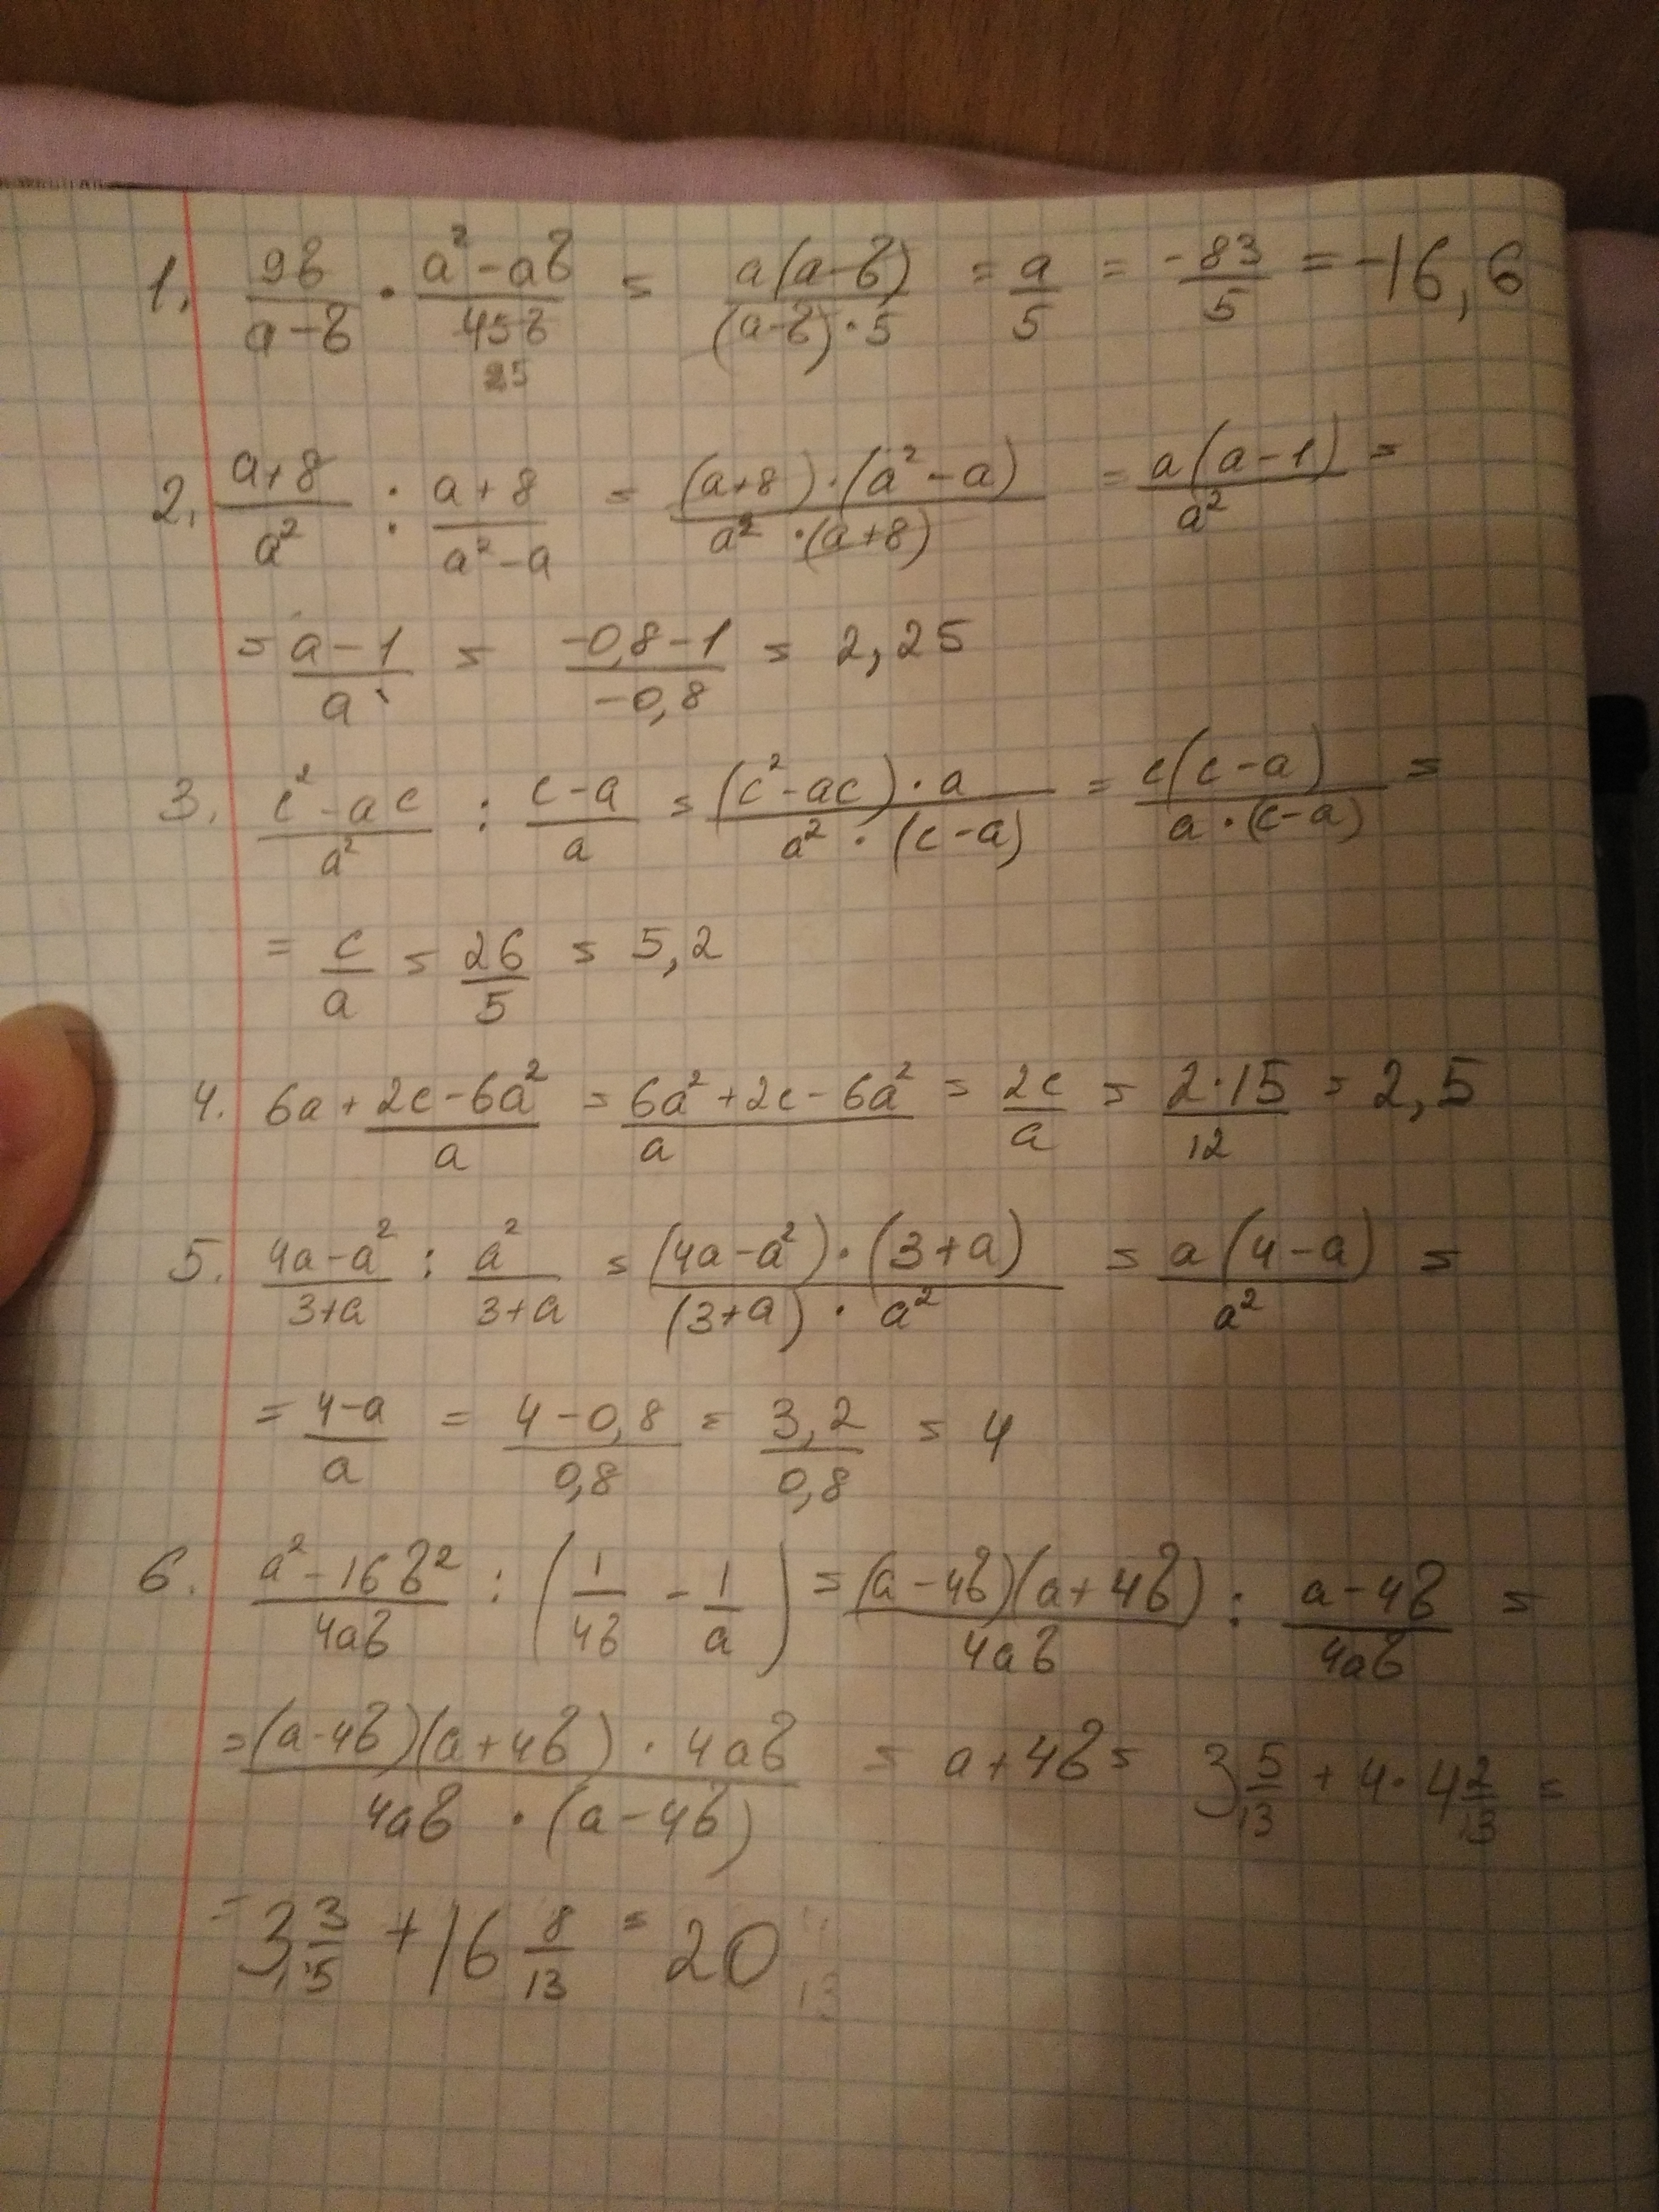 1. 9b/(a-b) · (a²-ab)/(45b) = a(a-b)/((a-b)·5) = a/5 = -83/5 = -16,6
5
2. (a+8)/a² : (a+8)/(a²-a) = (a+8)·(a²-a)/(a²·(a+8)) = a(a-1)/a² =
= (a-1)/a = (-0,8-1)/(-0,8) = 2,25
3. (c²-ac)/a² : (c-a)/a = (c²-ac)·a/(a²·(c-a)) = c(c-a)/(a·(c-a)) =
= c/a = 26/5 = 5,2
4. 6a + (2c-6a²)/a = (6a²+2c-6a²)/a = 2c/a = 2·15/12 = 2,5
5. (4a-a²)/(3+a) : a²/(3+a) = (4a-a²)·(3+a)/((3+a)·a²) = a(4-a)/a² =
= (4-a)/a = (4-0,8)/0,8 = 3,2/0,8 = 4
6. (a²-16b²)/(4ab) : (1/(4b) - 1/a) = (a-4b)(a+4b)/(4ab) : (a-4b)/(4ab) =
= (a-4b)(a+4b)·4ab/(4ab·(a-4b)) = a+4b = 3 5/13 + 4·4 2/13 =
= 3 + 16 8/13 = 20